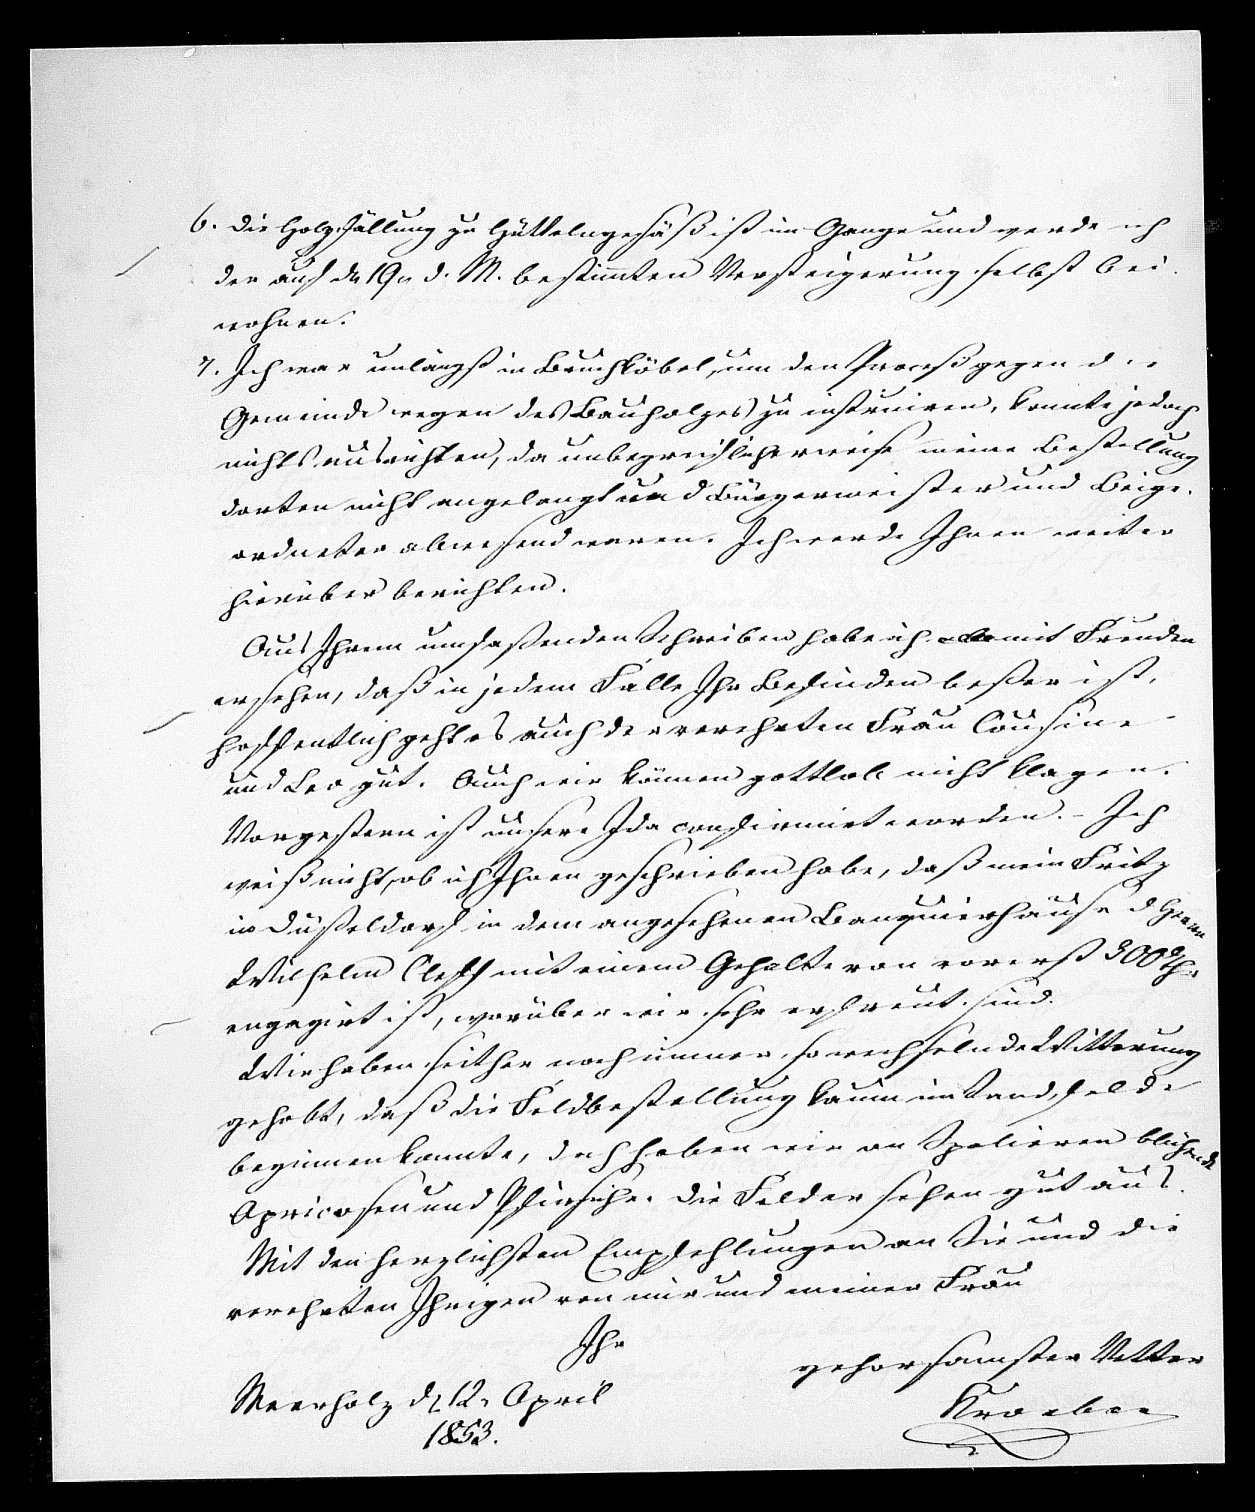 6. Die Holzfällung zu Hüttelngesäß ist im Gange und werde ich
der auf d. 19n d. M. bestimmten Versteigerung selbst bei
wohnen.
7. Ich war unlängst in Bruchköbel, um den Proceß gegen die
Gemeinde wegen des Bauholzes zu instruiren, konnte jedoch
nichts ausrichten, da unbegreiflicherweise meine Bestellung
dorten nicht angelangt und Bürgermeister und Beige-
ordneter abwesend waren. Ich werde Ihnen weiter
hierüber berichten.
Aus Ihrem umfaßenden Schreiben habe ich mit Freuden
ersehen, daß in jedem Falle Ihr Befinden beßer ist,
hoffentlich geht es auch der verehrten Frau Cousine
und Leo gut. Auch wir können gottlob nicht klagen.
Vorgestern ist unsere Ida confirmirt worden. – Ich
weiß nicht, ob ich Ihnen geschrieben habe, daß mein Fritz
in Düßeldorf in dem angesehenen Banquierhause d Herrn
Wilhelm Cleff mit einem Gehalte von vorerst 300 Thr
engagirt ist, worüber wir sehr erfreut sind.
Wir haben seither noch immer so wechselnde Witterung
gehabt, daß die Feldbestellung kaum im Sandfelde
beginnen konnte, doch haben wir an Spalieren blühende
Apricosen und Pfirsiche. Die Felder sehen gut aus.
Mit den herzlichsten Empfehlungen an Sie und die
verehrten Ihrigen von mir und meiner Frau
Ihr
gehorsamster Vetter
Meerholz d. 12. April
1853.
Kroeber